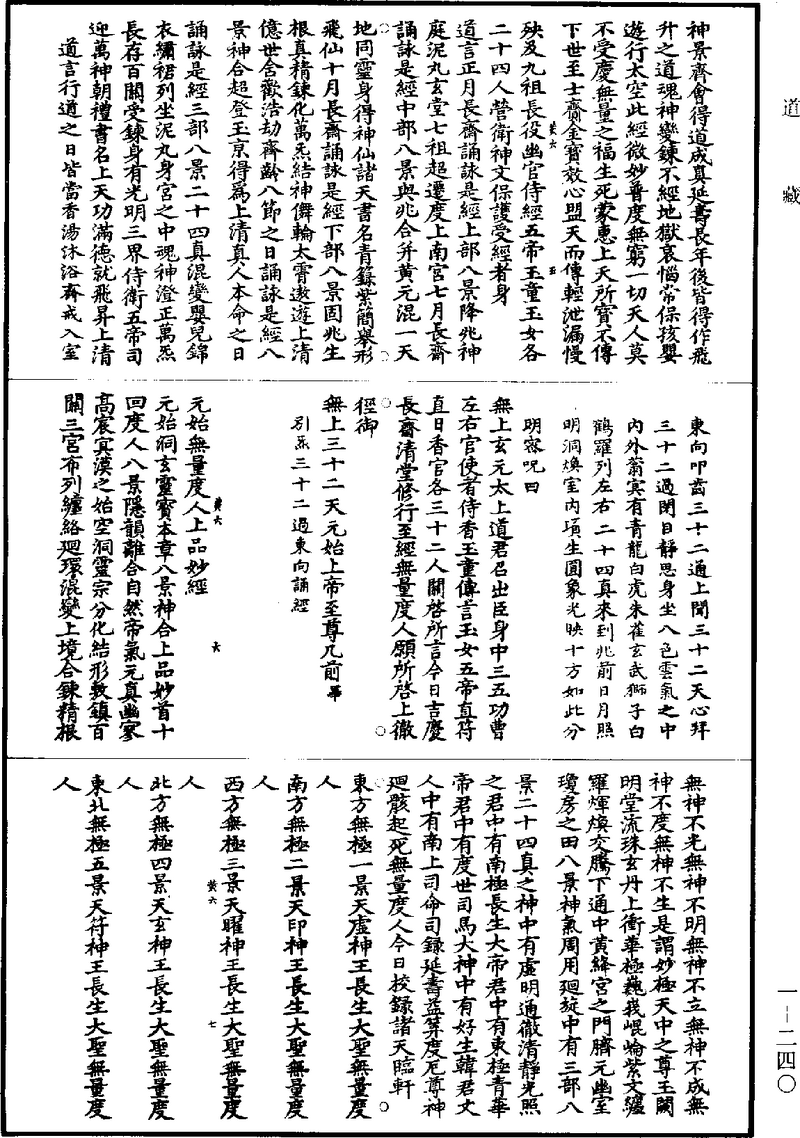 道藏
神景齊會得道成真延壽長年後皆得作飛
升之道魂神變鍊不經地獄哀惱常保孩嬰
遊行太空此經微妙普度無窮一切天人莫
不受慶無量之福生死蒙惠上天所寶不傳
下世至士賷金寶效心盟天而傳輕泄漏慢
殃及九祖長役幽官侍經五帝玉童玉女各
二十四人營衛神文保護受經者身
道言正月長齋誦詠是經上部八景降兆神
庭泥丸玄堂七祖超遷度上南宮七月長齋
誦詠是經中部八景與兆合并黄元混一天
地同靈身得神仙諸天書名青籙紫簡舉形
飛仙十月長齋誦詠是經下部八景固兆生
根真精鍊化萬炁結神儛輪太霄遨遊上清
億世含歡浩劫齊齡八節之日誦詠是經八
景神合超登玉京得爲上清真人本命之日
誦詠是經三部八景二十四真混變嬰兒錦
衣繡裙列坐泥丸身宮之中魂神澄正萬炁
長存百關受鍊身有光明三界侍衛五帝司
迎萬神朝禮書名上天功滿德就飛昇上清
道言行道之日皆當香湯沐浴齋戒入室
東向叩齒三十二通上聞三十二天心拜
三十二過閉目靜思身坐八色雲氣之中
内外蓊冥有青龍白虎朱雀玄武獅子白
鶴羅列左右二十四真來到兆前日月照
明洞煥室内項生圓象光映十方如此分
明密呪曰
無上玄元太上道君召出臣身中三五功曹
左右官使者侍香玉童傳言玉女五帝直符
直日香官各三十二人關啓所言今日吉慶
長齋清堂修行至經無量度人願所啓上徹
徑御
無上三十二天元始上帝至尊几前畢
引炁三十二過東向誦經
元始無量度人上品妙經
元始洞玄靈寶本章八景神合上品妙首十
回度人八景隱韻離合自然帝氣元真幽寥
高宸冥漠之始空洞靈宗分化結形敷鎮百
關三宮布列纏絡迴環混變上境合鍊精根
無神不光無神不明無神不立無神不成無
神不度無神不生是謂妙極天中之尊玉闕
明堂流珠玄丹上衝華極巍峩崐崘紫文纏
羅煇煥交騰下通中黄絳宮之門臍元幽室
瓊房之田八景神氣周用迴旋中有三部八
景二十四真之神中有虚明通徹清靜光照
之君中有南極長生大帝君中有東極青華
帝君中有度世司馬大神中有好生韓君丈
人中有南上司命司録延壽益算度厄尊神
迴骸起死無量度人今日校録諸天臨軒
東方無極一景天虚神王長生大聖無量度
人
南方無極二景天印神王長生大聖無量度
人
西方無極三景天曜神王長生大聖無量度
人
北方無極四景天玄神王長生大聖無量度
人
東北無極五景天符神王長生大聖無量度
人
黄六
五
黄六
六
黄六
七
一—二四〇